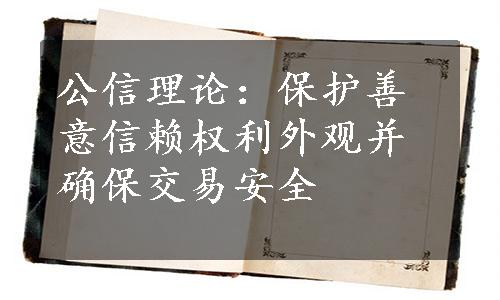 公信理论：保护善
意信赖权利外观并
确保交易安全